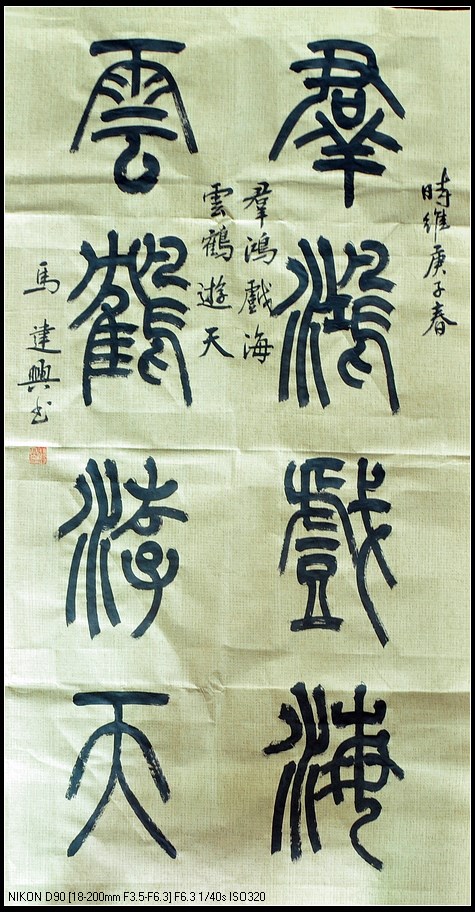 時維庚子春
羣鴻戲海
羣鴻戲海
雲鶴遊天
雲鶴游天
馬達興書
NIKON D90 [18-200mm F3.5-F6.3] F6.3 1/40s ISO320